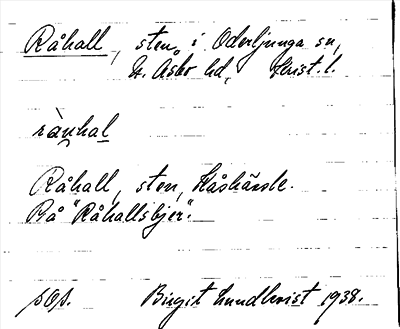 Råhall, sten, i Oderljunga sn,
N. Asbo hd, Krist. l.
ràu̯hal
Råhall, sten, Håshärsle.
På "Råhallsbjer".
Birgit Lundkvist 1938.